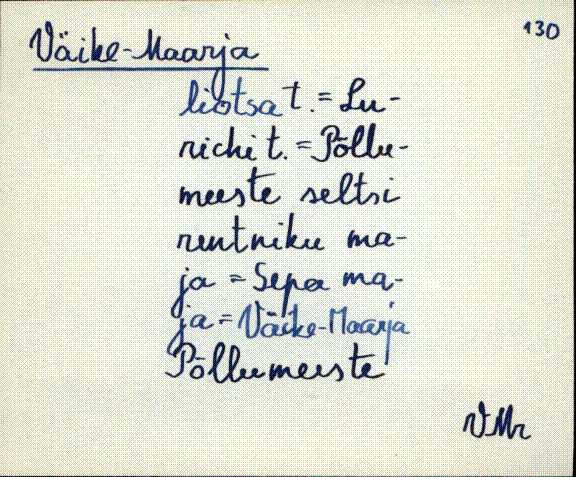 130
Väike-Maarja
liotsa t. = Lu-
richi t. = Põllu-
meeste seltsi
rentniku ma-
ja = Sepa ma-
ja = Väike-Maarja
Põllumeeste
VMr